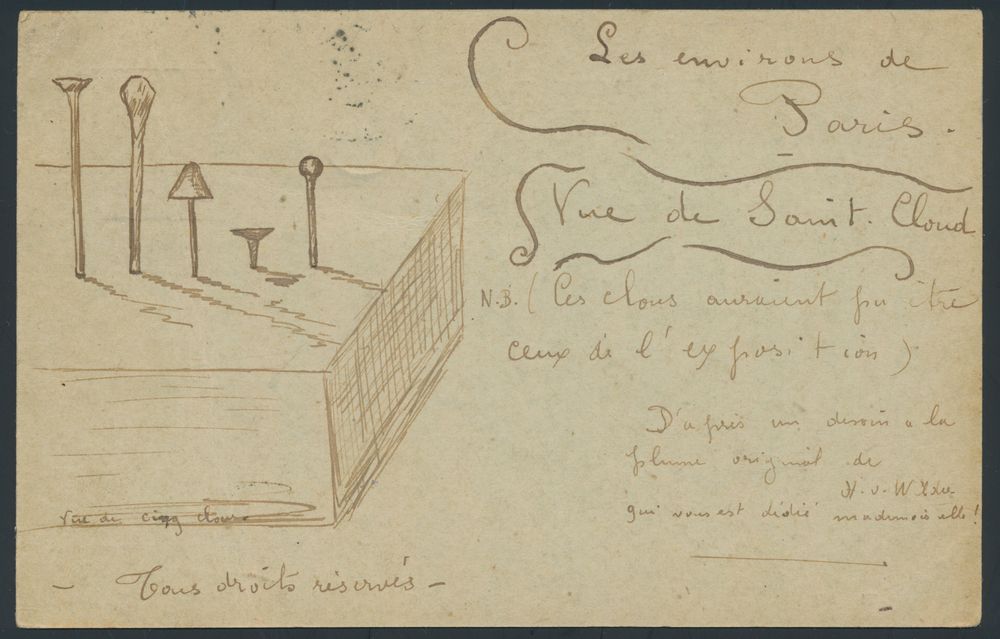 Les environs de
Paris.
Vue de Saint. Cloud
N.B. (Ces clous auraient pu être
ceux de l'exposition)
D'après un dessin a la
plume original de
H. v. W
qui vous est dédié mademoiselle!
Vue de cinq clous.
— Tous droits réservés —